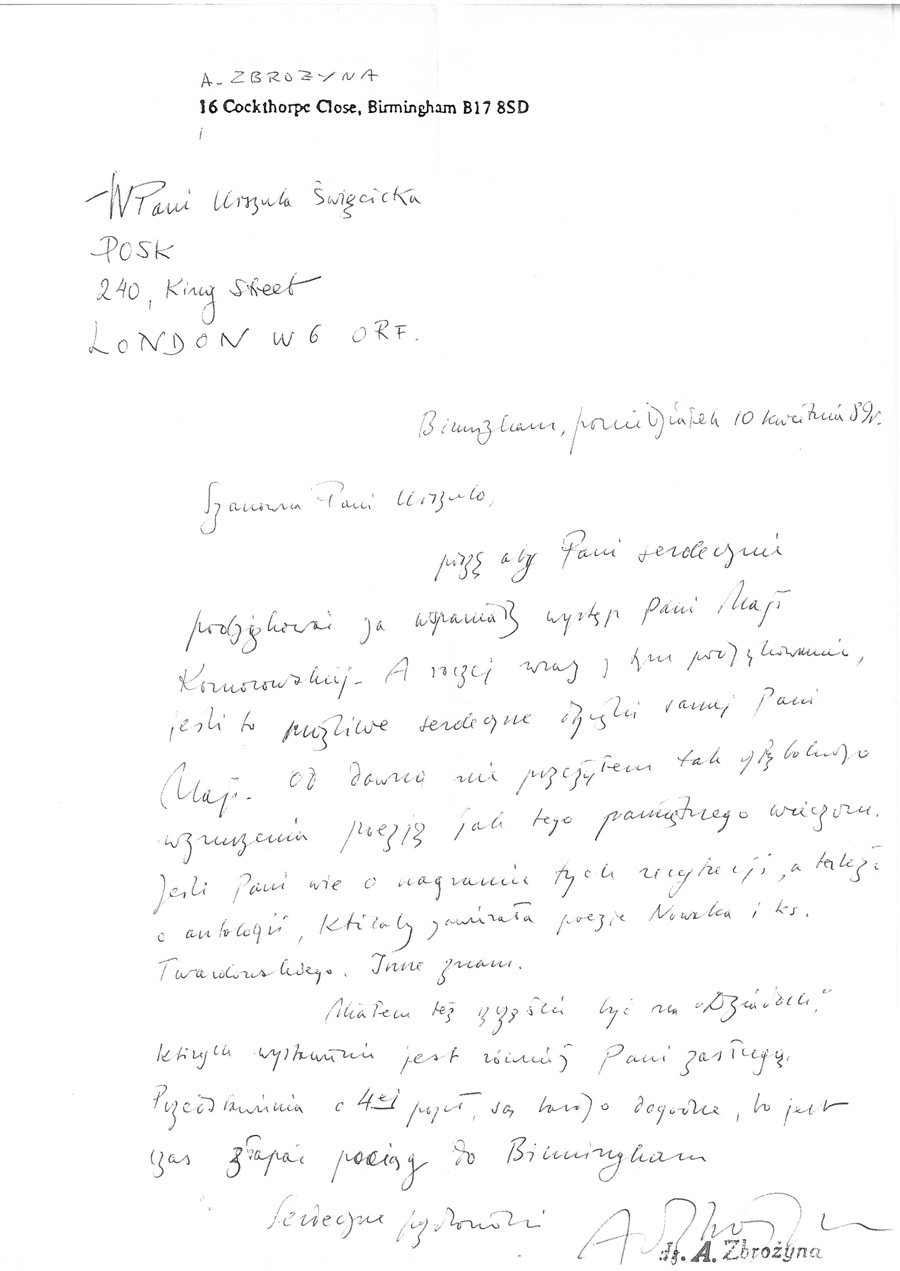 A. ZBROŻYNA
16 Cockthorpe Close, Birmingham B17 8SD
WPani Urszula Święcicka
POSK
240, King Street
LONDON W6 ORF.
Birmingham, poniedziałek 10 kwietnia 89r.
Szanowna Pani Urszulo,
piszę aby Pani serdecznie
podziękować za wspaniały występ Pani Maji
Komorowskiej. A raczej wraz z tym podziękowaniem,
jeśli to możliwe serdeczne dzięki samej Pani
Maji. Od dawna nie przeżyłem tak głębokiego
wzruszenia poezją jak tego pamiętnego wieczoru.
Jeśli Pani wie o nagraniu tych recytacji, a także
o antologii, któraby zawierała poezje Nowaka i ks.
Twardowskiego. Inne znam.
Miałem też szczęście być na "Dziadach",
których wystawienie jest również Pani zasługą.
Przedstawienia o 4ej popoł. są bardzo dogodne, bo jest
czas złapać pociąg do Birmingham
Serdeczne pozdrowienia
A. Zbrożyna